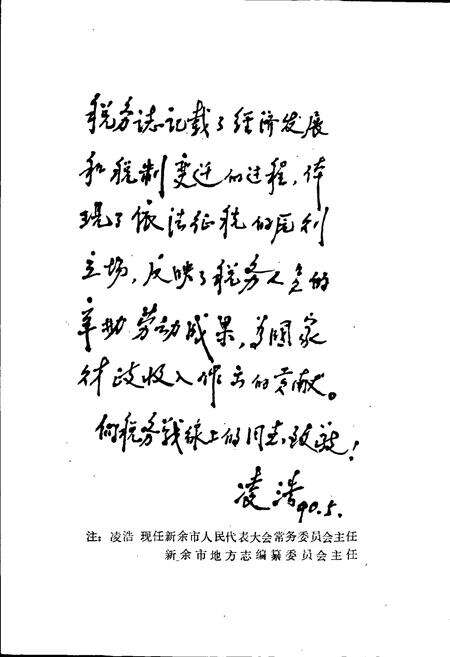 税务志记载了经济发展
和税制变迁的过程，体
现了依法征税的
立场，反映了税务人员的
辛勤劳动成果，为国家
财政收入作出的贡献。
向税务战线上的同志致敬！
凌浩 90.5.
注：凌浩 现任新余市人民代表大会常务委员会主任
新余市地方志编纂委员会主任